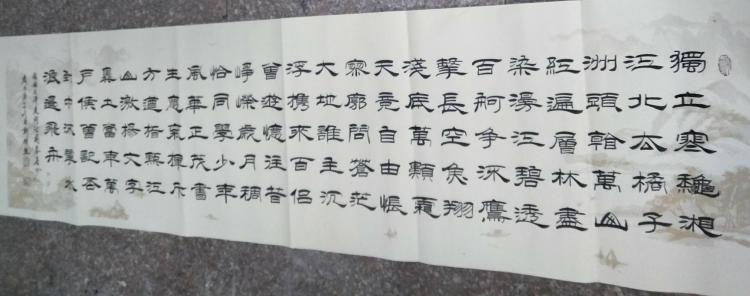 獨立寒龝湘
江北去橘子
洲頭看萬山
紅遍層林盡
染漫江碧透
百舸争流鷹
擊長空魚翔
淺底萬類霜
天競自由悵
寥廓問蒼茫
大地誰主沉
浮攜來百侶
曾遊憶往昔
崢嶸歲月稠
恰同學少年
風華正茂書
生意氣揮斥
方遒指點江
山激揚文字
糞土當年萬
戶侯曾記否
到中流擊水
浪遏飛舟